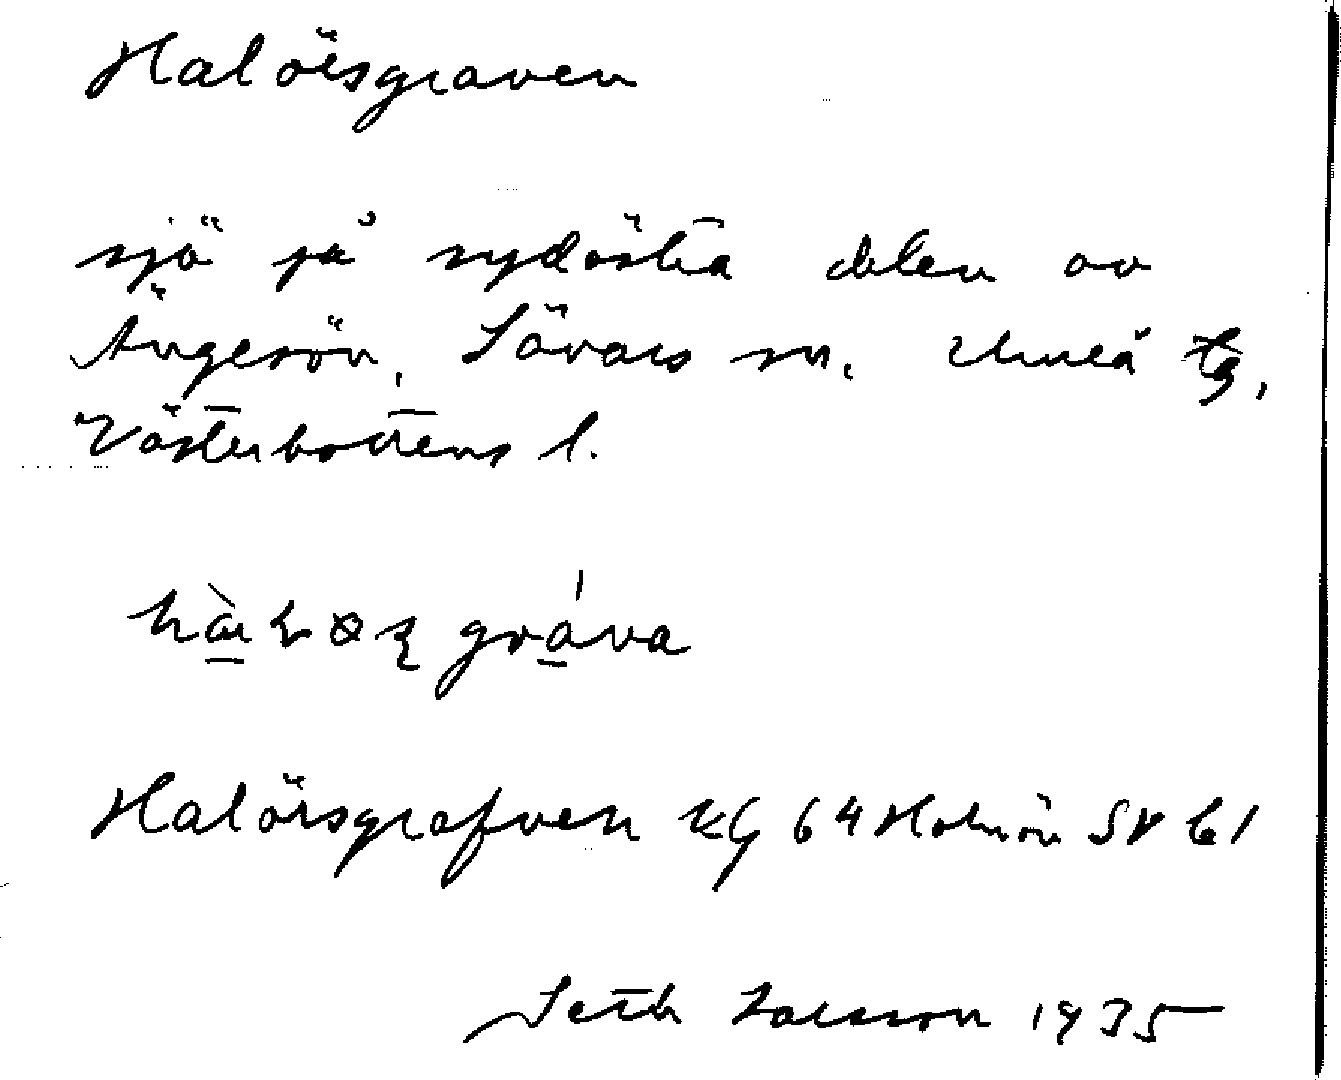 Halörsgraven
sjö på sydöstra delen av
Ängesön, Sävars sn. Umeå tg,
Västerbottens l.
gráva
Halörsgrafven KG 64 Holmön SV bl
Seth Larsson 1935